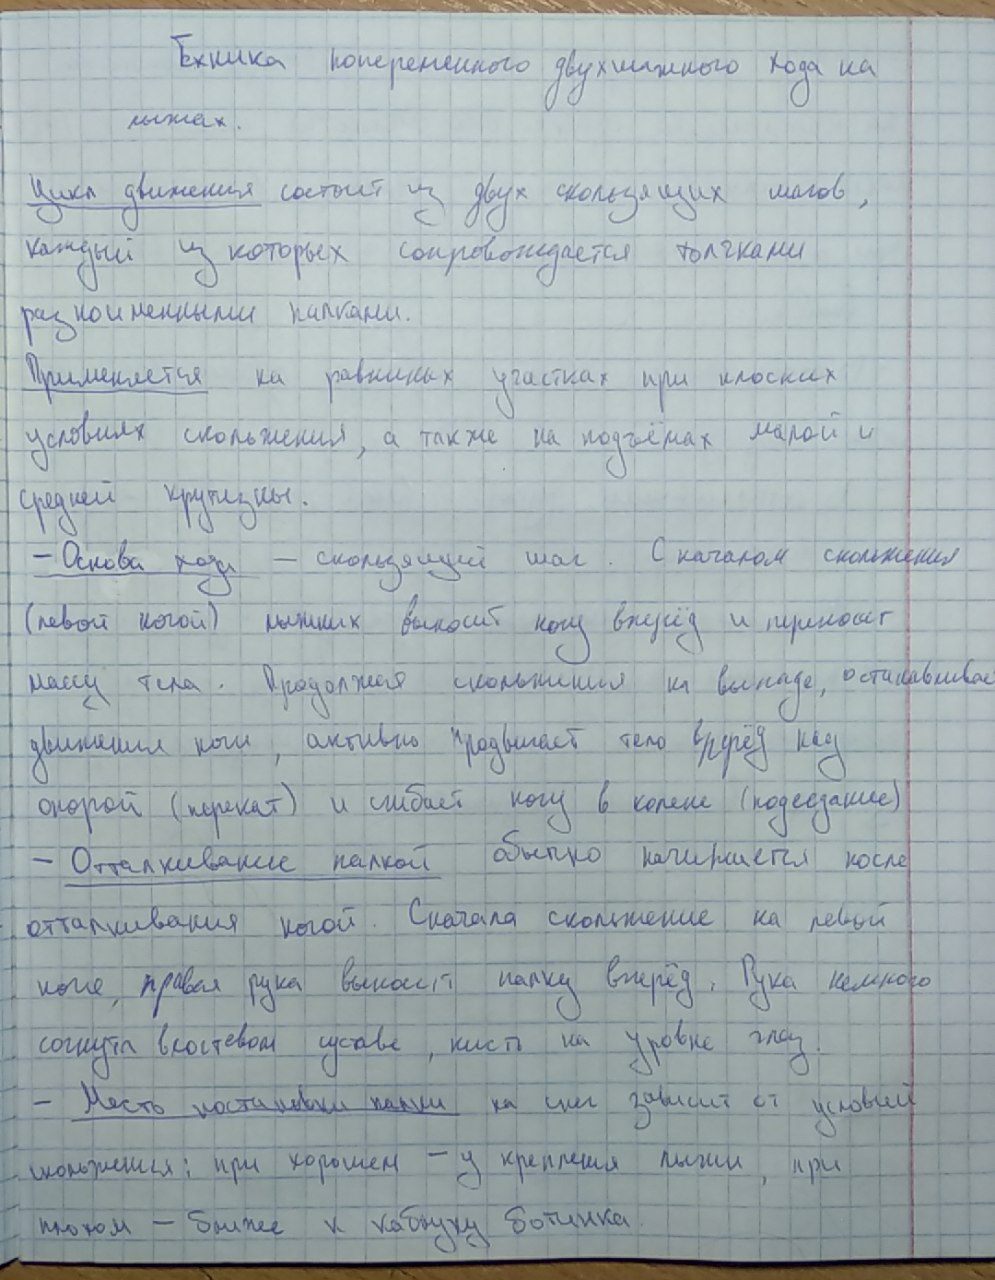 Техника попеременного двухшажного хода на
лыжах.
Цикл движения состоит из двух скользящих шагов,
каждый из которых сопровождается толчками
разноименными палками.
Применяется на равнинных участках при плоских
условиях скольжения, а также на подъёмах малой и
средней крутизны.
- Основа хода - скользящий шаг. С началом скольжения
(левой ногой) лыжник выносит ногу вперёд и переносит
массу тела. Продолжая скольжения на выпаде, останавливае
движения ноги, активно продвигает тело вперёд над
опорой (перекат) и сгибает ногу в колене (подседание)
- Отталкивание палкой обычно начинается после
отталкивания ногой. Сначала скольжение на левой
ноге, правая рука выносит палку вперёд. Рука немного
согнута в костевом суставе, кисть на уровне глаз.
- Месть постановки палки на снег зависит от условий
скольжения: при хорошем - у крепления лыжи, при
плохом - ближе к каблуку ботинка.